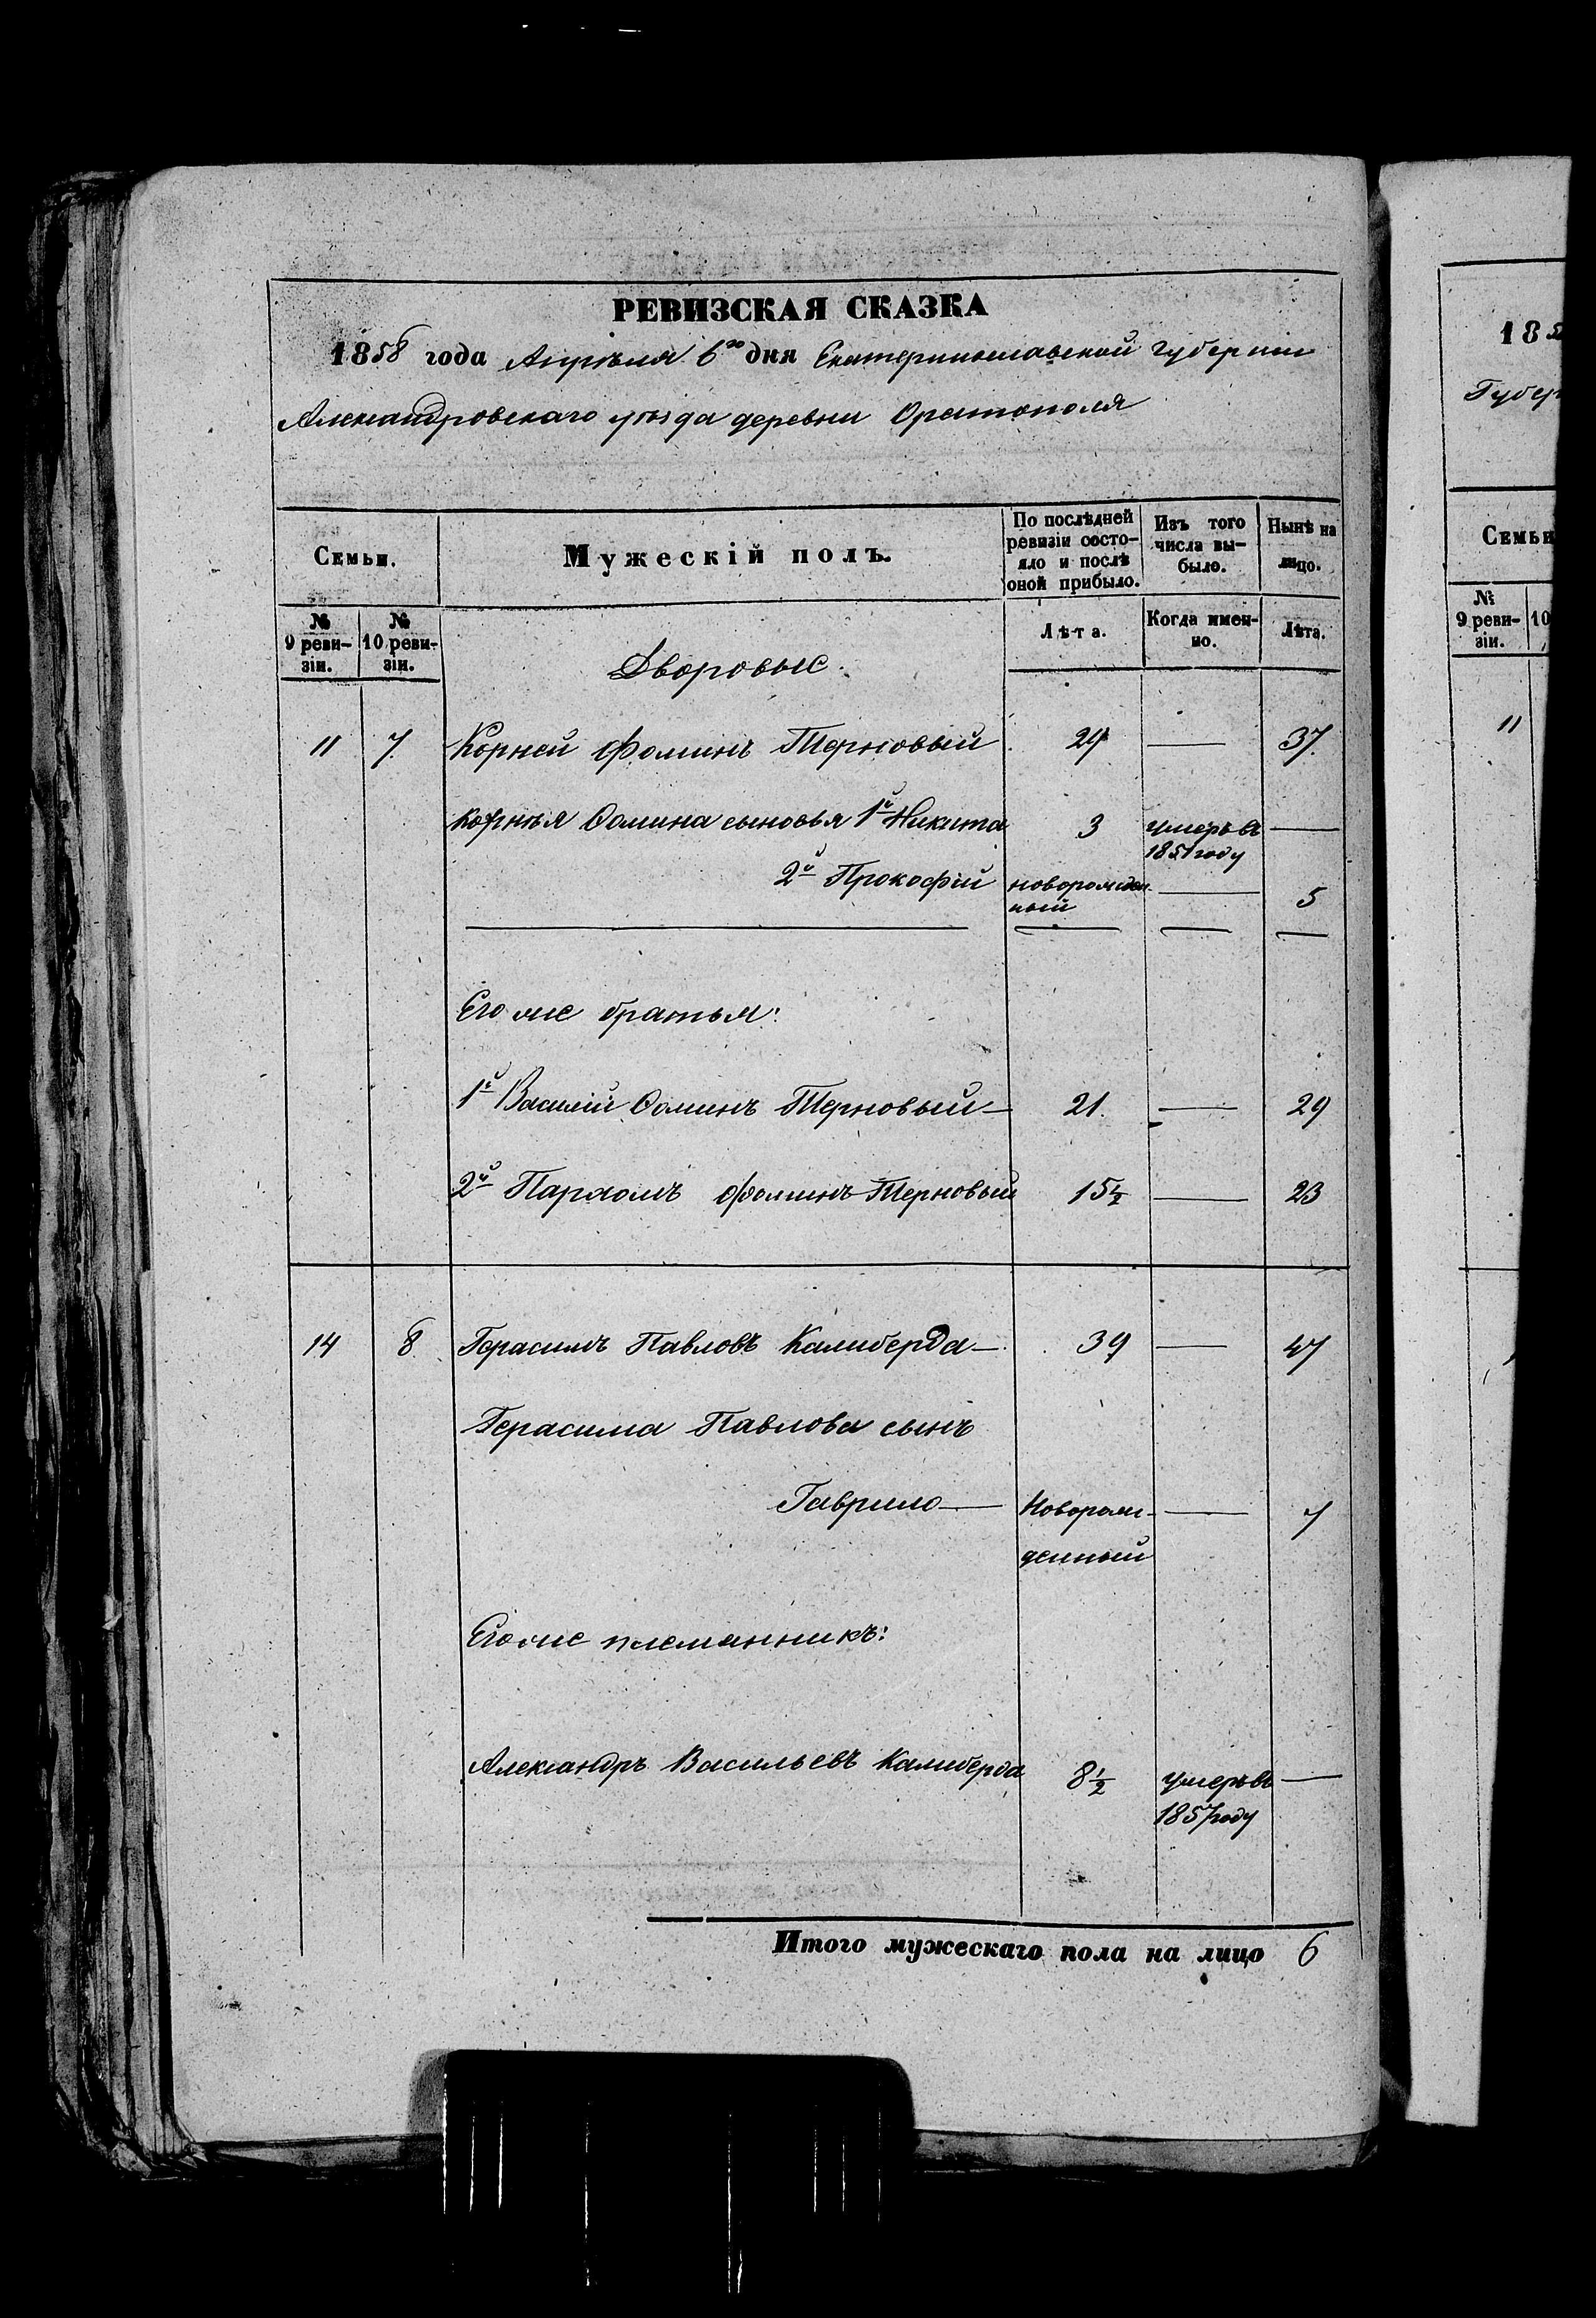 РЕВИЗСКАЯ СКАЗКА
1858 года Апрѣля 6го дня Екатеринославской Губерніи
Александровскаго уѣзда деревни Орестополя
Семьи. Мужескій полъ. По послѣдней ревизіи состояло и послѣ оной прибыло. Изъ того числа выбыло. Нынѣ на лицо.
№ 9 ревизіи. № 10 ревизіи. Лѣта. Когда именно. Лѣта.
Дворовые.
11 7. Корней Фоминъ Терновый 29 — 37.
Корнѣя Фомина сыновья 1й Никита 3 умеръ въ 1851 году —
2й Прокофій новорожденный — 5
Его же братья:
1й Василій Фоминъ Терновый — 21. — 29
2й Пархомъ Фоминъ Терновый 15½ — 23
14 8. Герасимъ Павловъ Калиберда — 39 — 47
Герасима Павлова сынъ
Гаврило — Новорожденный — 7
Его же племянникъ:
Александръ Васильевъ Калиберда 8½ умеръ въ 1857 году —
Итого мужескаго пола на лицо 6
185
Губер
Семьи
№ 9 ревизіи. 10
11